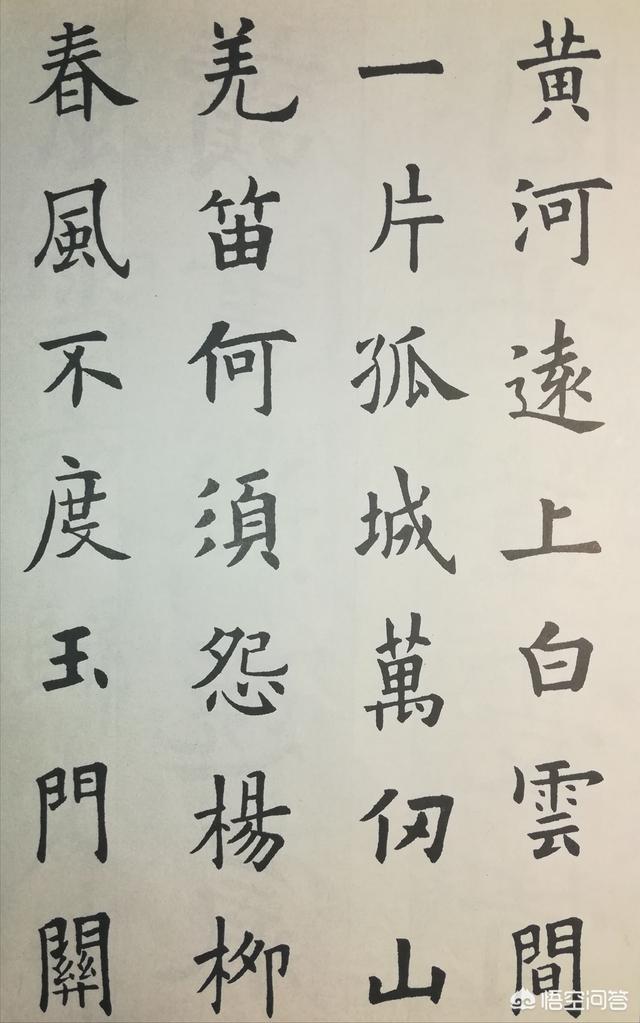 黄河遠上白雲間
一片孤城萬仞山
羌笛何須怨楊柳
春風不度玉門關
悟空问答